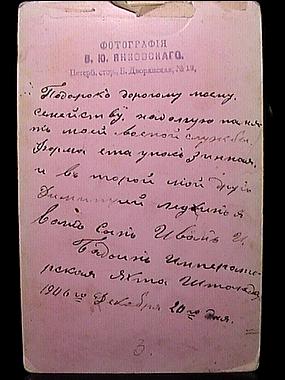 ФОТОГРАФІЯ
В. Ю. ЯНКОВСКАГО.
Петерб. стор., Б. Дворянская, № 19,
Подарокъ дорогому моему
семейству, на долгую памя
ть моей военой службы.
Форма ета у насъ зимная
и въ торой мой другъ
Димитрий
вашъ Сынъ Иванъ И.
Императо
рская Яхта Штандар
1906 го Декабря 20 го дня.
3.